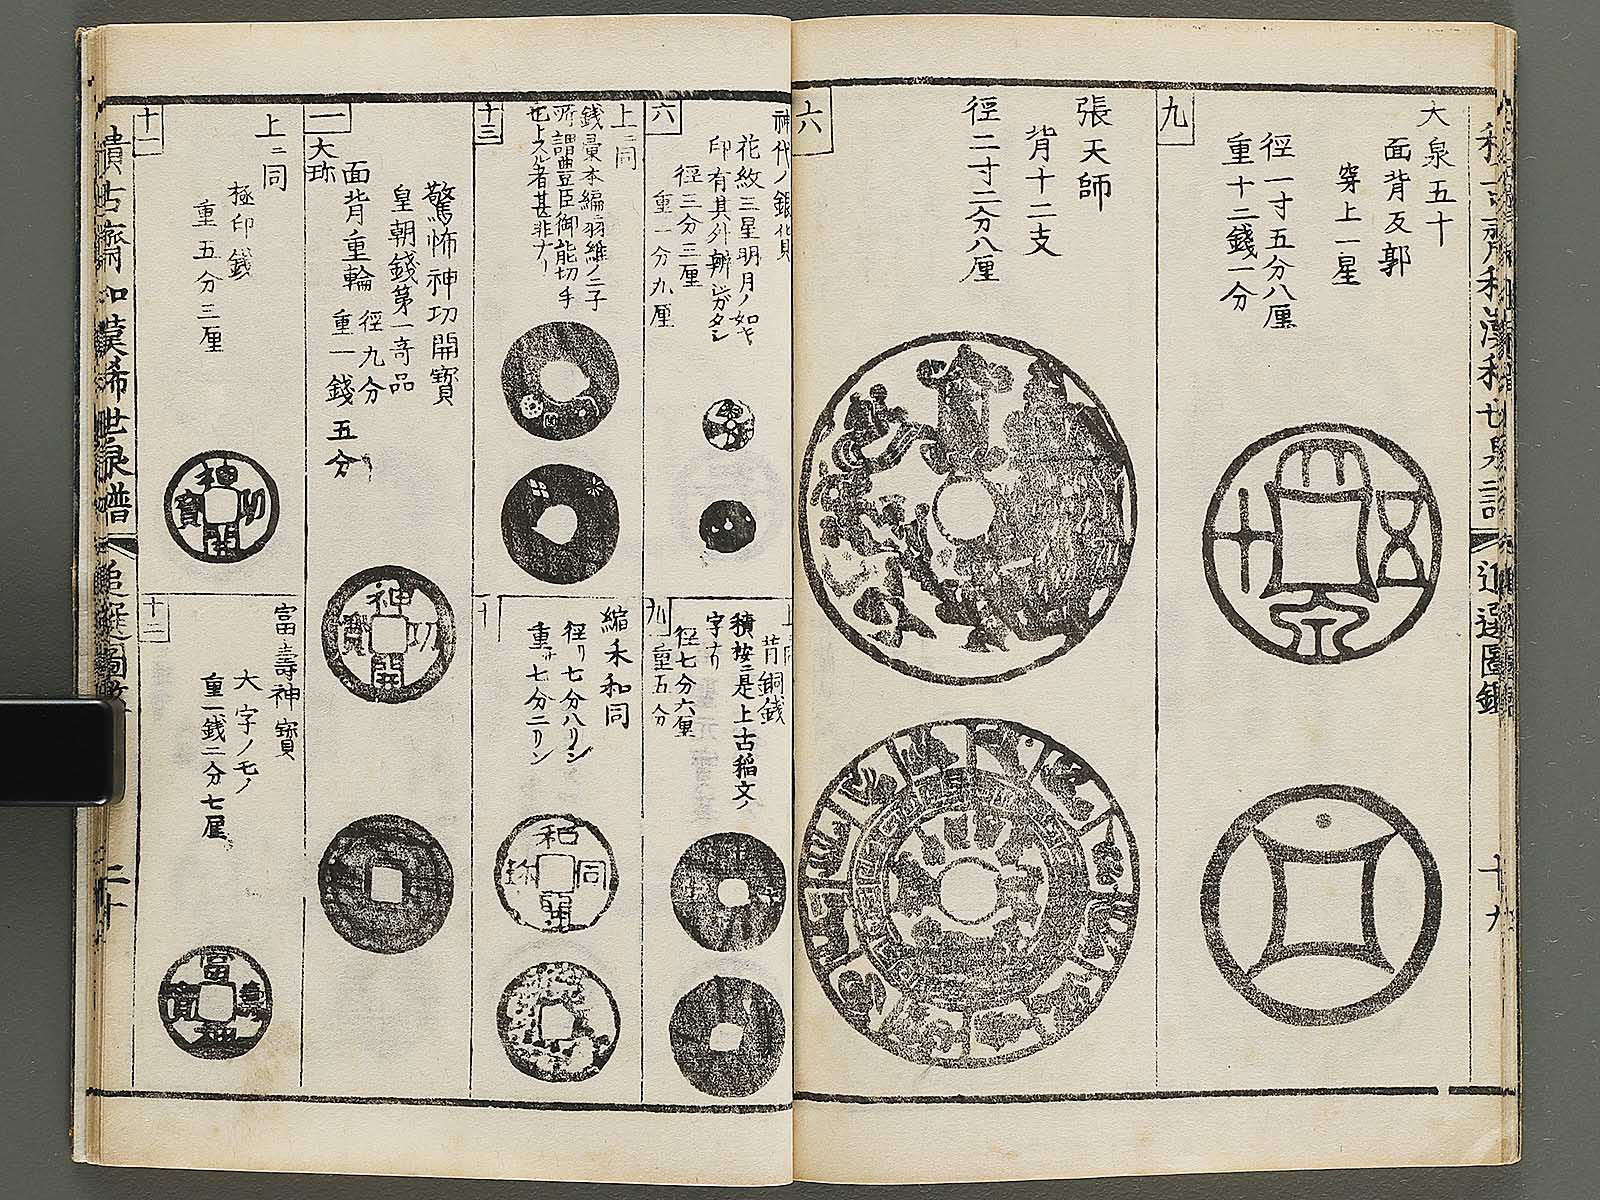 九
大泉五十
面背反郭
穿上一星
径一寸五分八厘
重十二錢一分
六
張天師
背十二支
径二寸二分八厘
追選圖
十九
六
神代ノ銀貨
花紋三星明月ノ如キ
印有其外辨シガタシ
径三分三厘
重一分九厘
昔銅錢
積按ニ是上古稲文ノ
字ナリ
径七分六厘
重五分
十三
上ニ同
錢彙本編羽維ノ二子
所謂豊臣御能切手
也トスル者甚非ナリ
十
縮禾和同
径リ七分八リン
重サ七分二リン
和同開珎
一
大珎
驚怖神功開寳
皇朝錢第一奇品
面背重輪
径九分
重一錢五分
神功開寳
十一
上ニ同
極印錢
重五分三厘
神功開寳
十二
富壽神寳
大字ノモノ
重一錢二分七厘
富壽神寳
積古齋和漢稀世泉譜
追選圖
二十